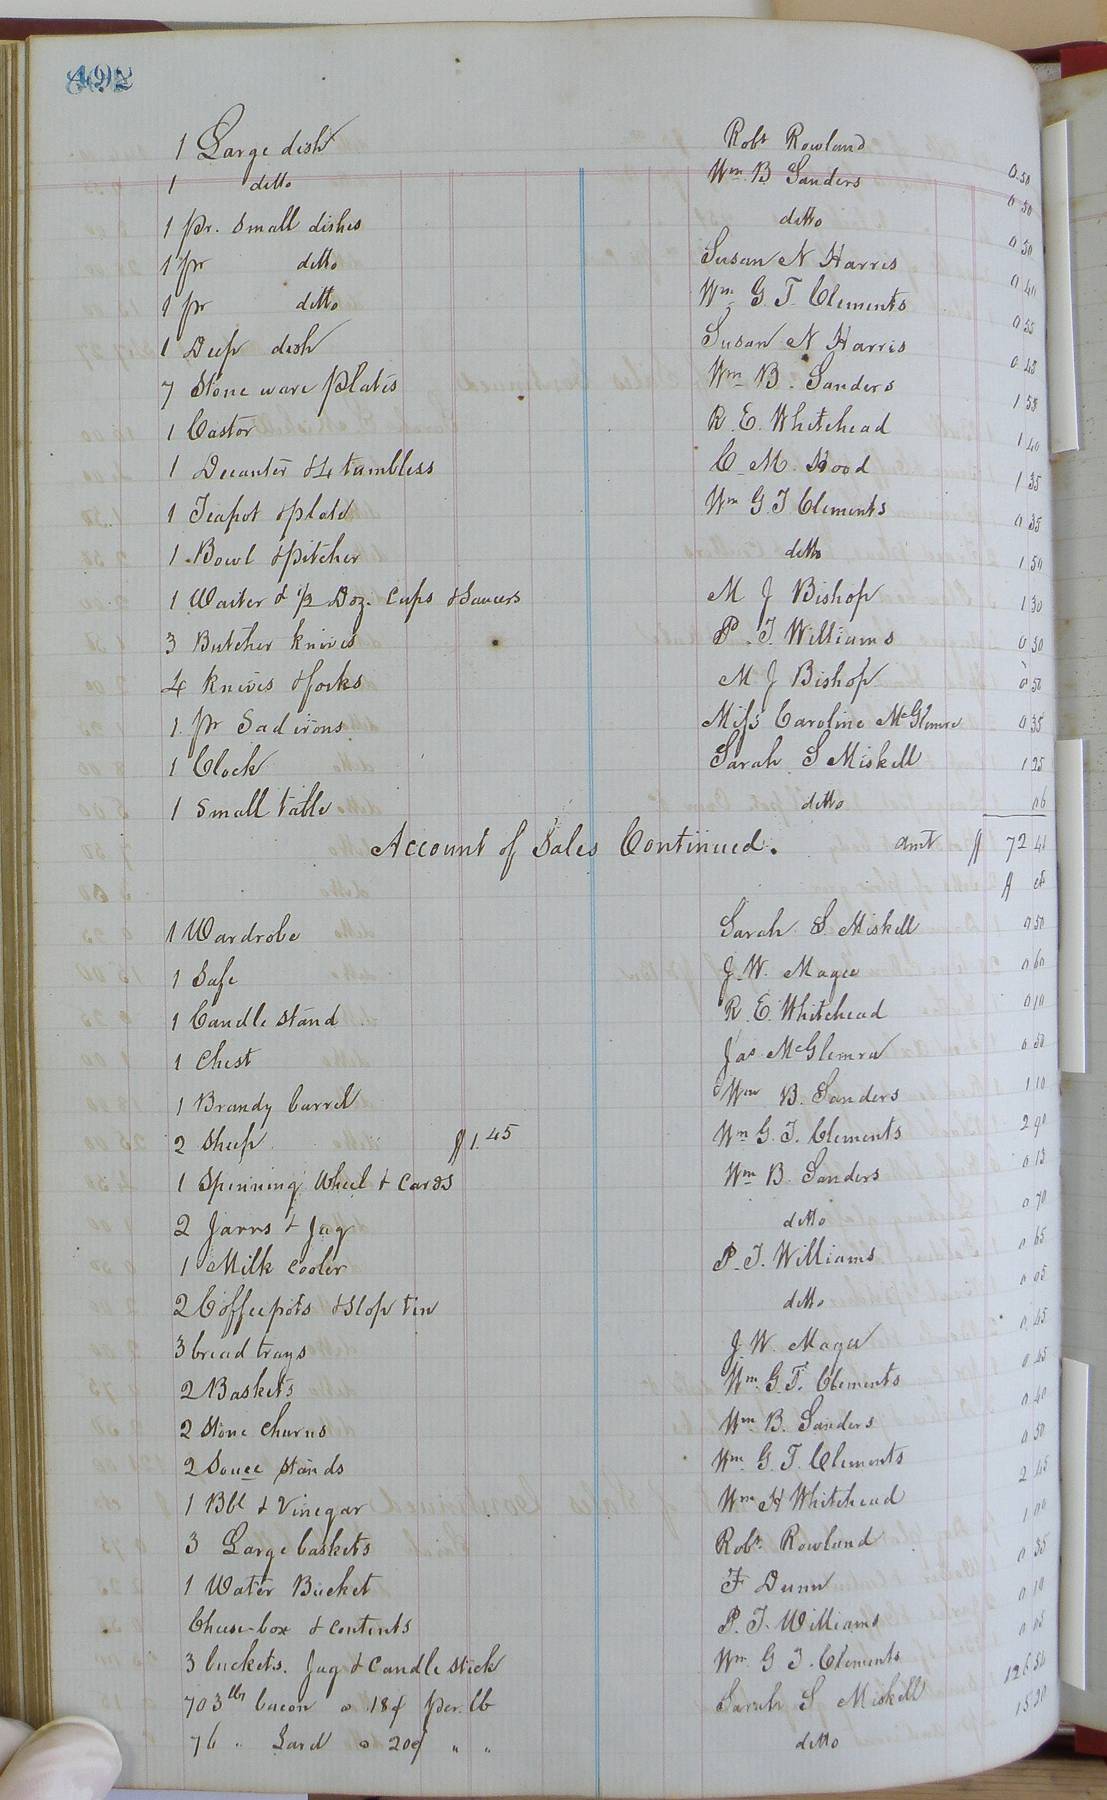 492
1 Large dish Robt Rowland 0.50
1 ditto Wm. B. Sanders 0 50
1 pr. small dishes ditto 0 50
1 pr ditto Susan N Harris 0 40
1 pr ditto Wm G. T. Clements 0 55
1 Deep dish Susan N Harris 0 45
7 Stone ware plates Wm B. Sanders 1 55
1 Castor R. E. Whitehead 1 40
1 Decanter & 4 tumbless C. M. Hood 1 35
1 Teapot & plate Wm G. T Clements 0 35
1 Bowl & pitcher ditto 1 50
1 Waiter & 1/2 Doz. Cups & Saucers M J Bishop 1 30
3 Butcher knives P. T. Williams 0 50
4 knives & forks M J Bishop 0 50
1 pr Sad irons Miss Caroline McGlemre 0 35
1 Clock Sarah S Miskell 1 25
1 Small table ditto 06
Account of Sales Continued. amt $ 72 41
$ cts
1 Wardrobe Sarah S Miskell 0 50
1 Safe J. W. Magee 0 60
1 Candle stand R. E. Whitehead 0 10
1 Chest Jas McGlemra 0 50
1 Brandy barrel Wm B. Sanders 1 10
2 Sheep $1.45 Wm G. T. Clements 2 90
1 Spinning Wheel & Cards Wm B. Sanders 0 15
2 Jarrs & Jug ditto 0 70
1 Milk Cooler P. T. Williams 0 65
2 Coffeepots & Slop tin ditto 0 05
3 bread trays J. W. Magee 0 45
2 Baskets Wm. G. T. Clements 0 45
2 Stone Churns Wm B. Sanders 0 40
2 stands Wm G. T. Clements 0 50
1 Bbl & Vinegar Wm H Whitehead 2 45
3 Large baskets Robt. Rowland 1 00
1 Water Bucket F Dunn 0 35
Cheese-box & contents P. T. Williams 0 10
3 buckets. Jug & Candle stick Wm G T. Clements 0 05
703 lbs bacon @ 18¢ per. lb Sarah S Miskell 126.54
76 " Lard @ 20¢ " " ditto 15.20